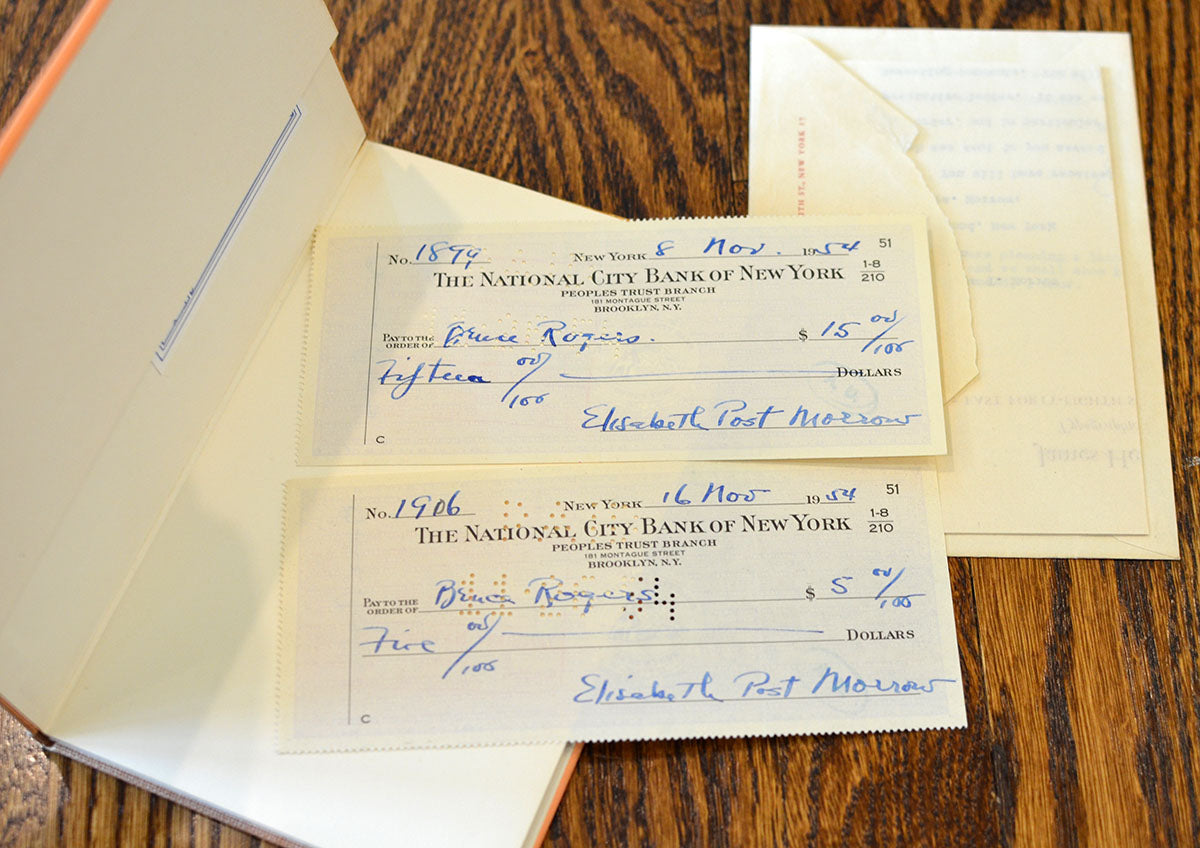 No. 1899 NEW YORK 8 Nov. 1954 51
THE NATIONAL CITY BANK OF NEW YORK 1-8
PEOPLES TRUST BRANCH 210
181 MONTAGUE STREET
BROOKLYN, N.Y.
PAY TO THE
ORDER OF Bruce Rogers. $ 15 00/100
Fifteen 00/100 DOLLARS
Elisabeth Post Morrow
C
No. 1906 NEW YORK 16 Nov 1954 51
THE NATIONAL CITY BANK OF NEW YORK 1-8
PEOPLES TRUST BRANCH 210
181 MONTAGUE STREET
BROOKLYN, N.Y.
PAY TO THE
ORDER OF Bruce Rogers $ 5 00/100
Five 00/100 DOLLARS
Elisabeth Post Morrow
C
TH ST., NEW YORK 17
you will have receive
Morrow,
New York
EAST FORTY-EIGHTH S
James He